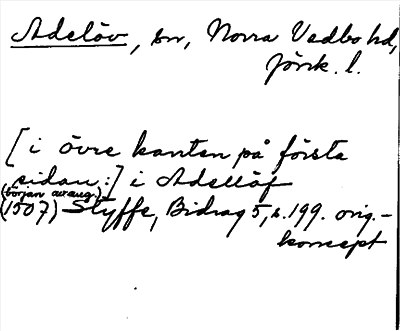 Adelöv, sn, Norra Vedbo hd,
Jönk. l.
[i övre kanten på första
sidan:] i Adellöf
(början av aug.)
(1507) Styffe, Bidrag 5, s. 199. orig.-
koncept